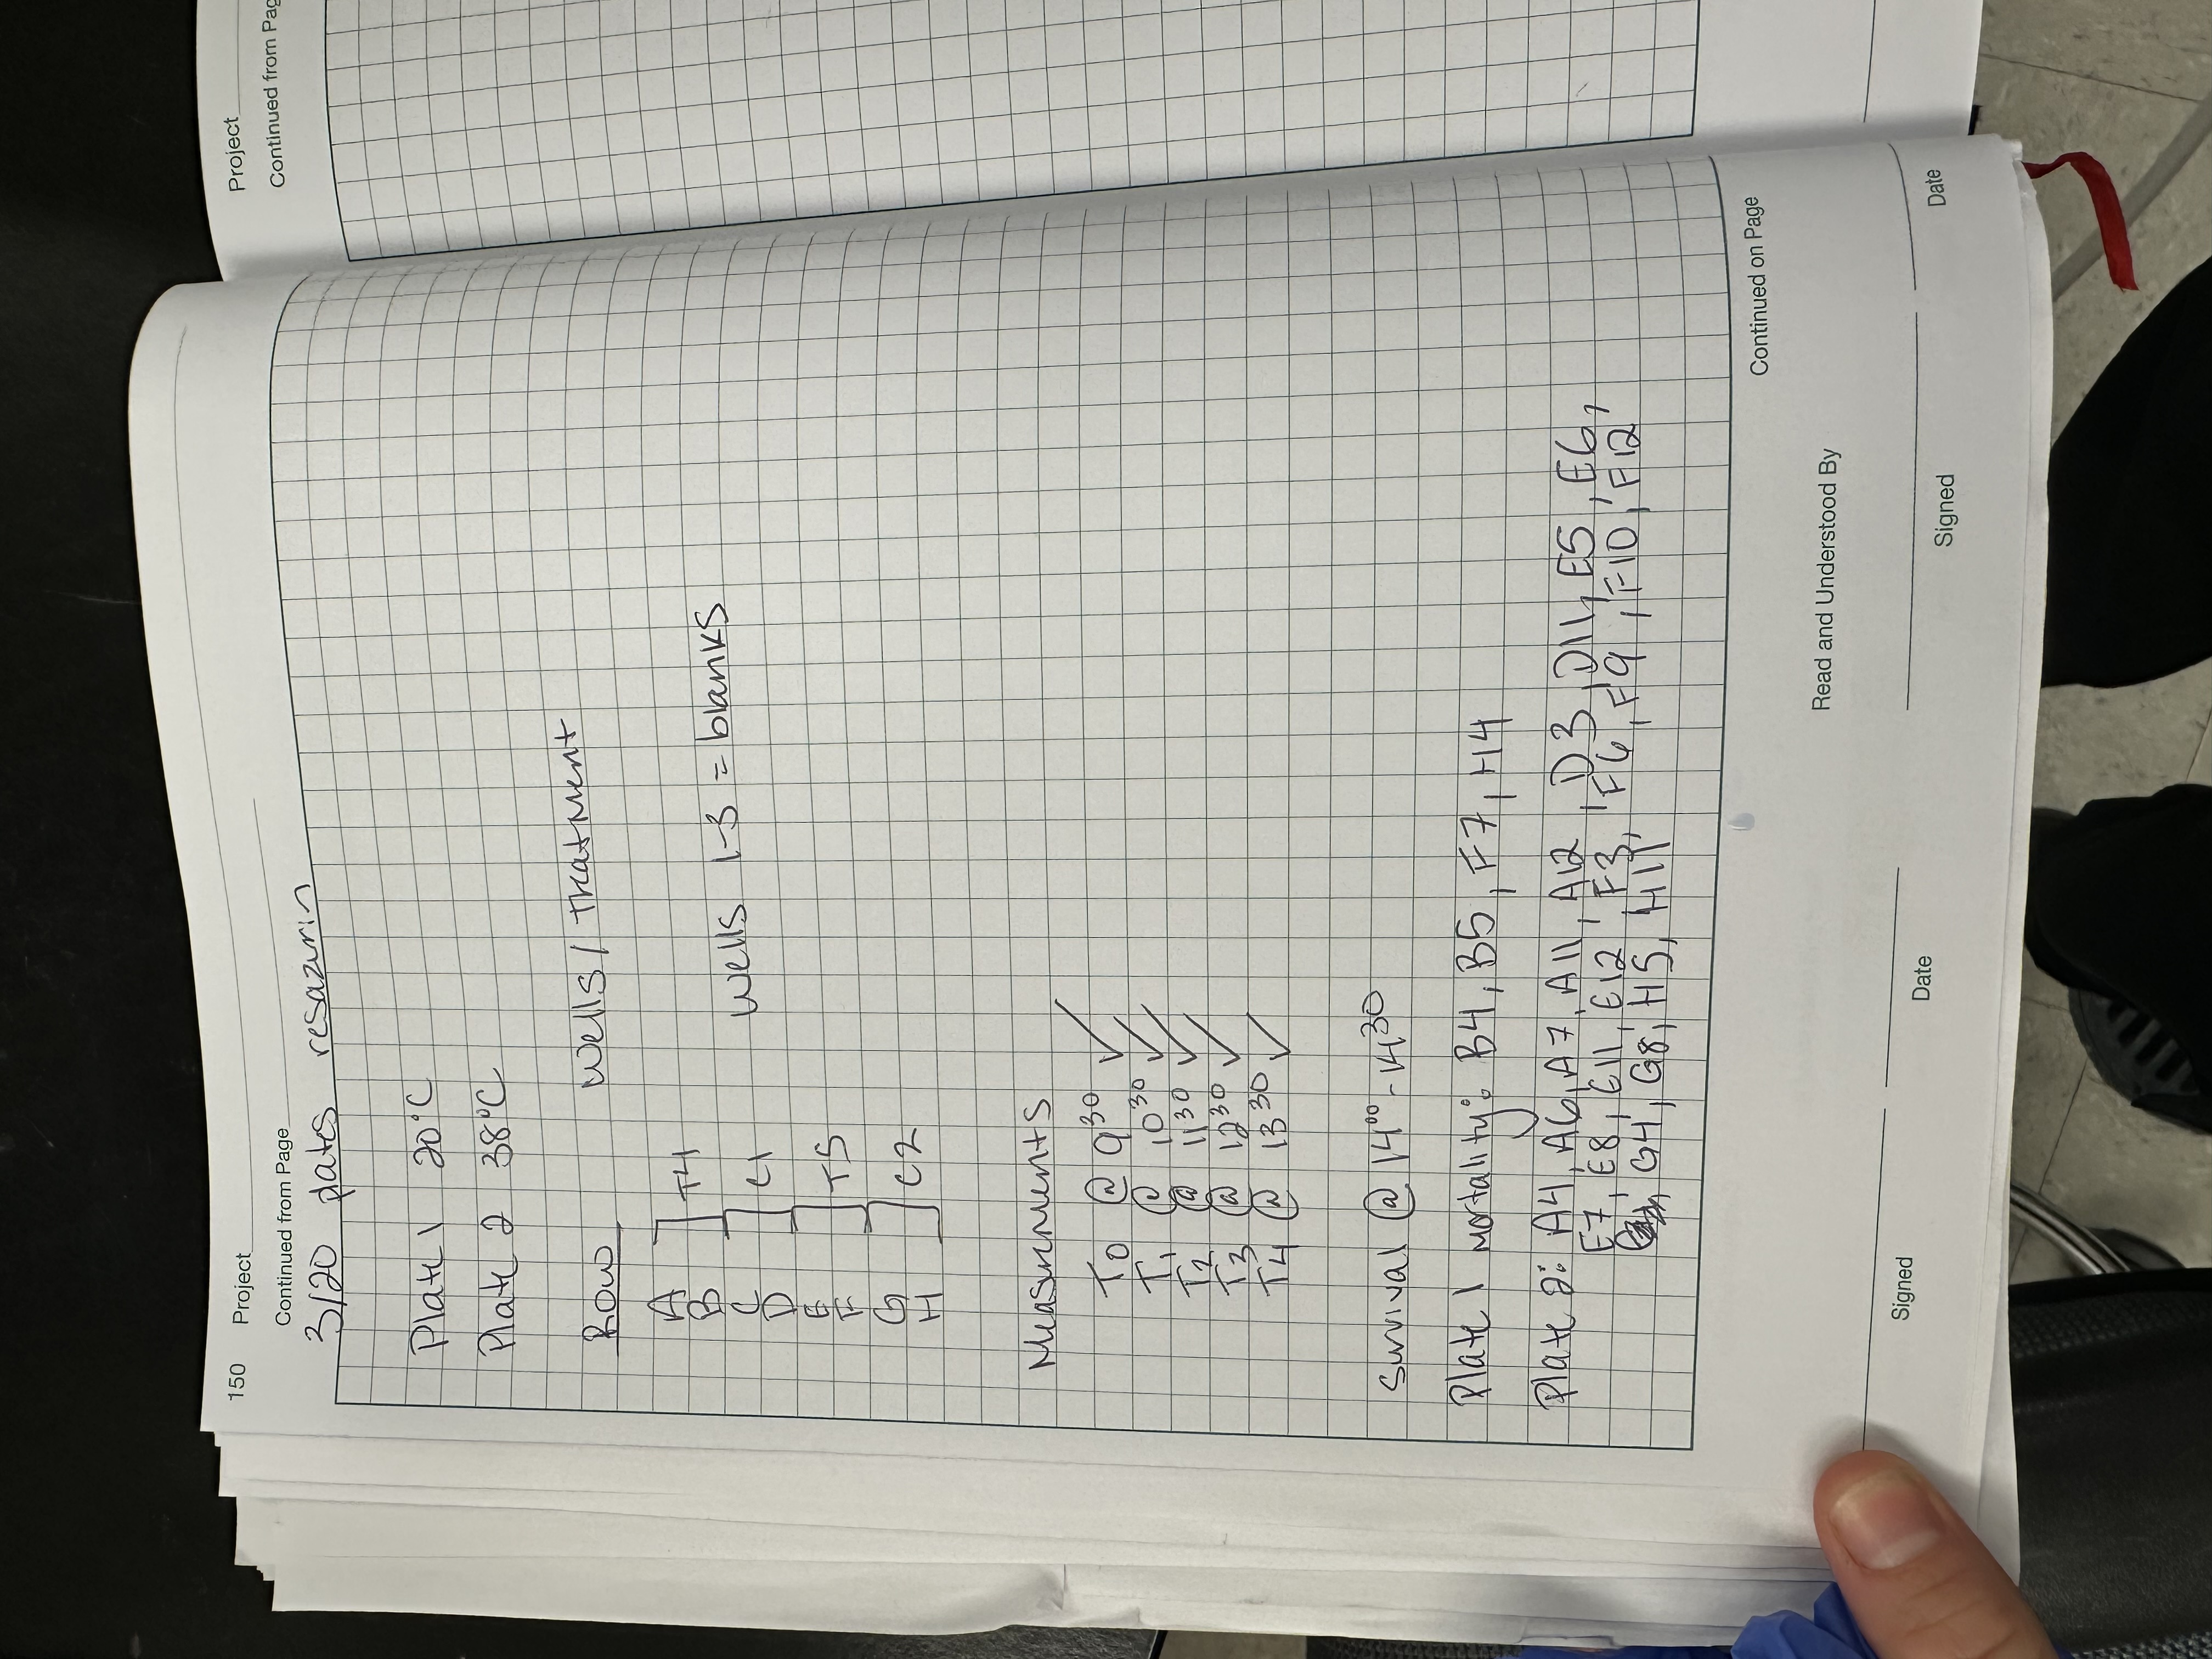 150 Project
Continued from Page
3/20 plates resazurin
Plate 1 20°C
Plate 2 38°C
Row Wells / treatment
A
B
T4
C
D
C1
E
F
T5
G
H
C2
Wells 1-3 = blanks
Measurements
T0 @ 9 30 ✓
T1 @ 10 30 ✓
T2 @ 11 30 ✓
T3 @ 12 30 ✓
T4 @ 13 30 ✓
Survival @ 14 00 - 14 30
Plate 1 mortality: B4, B5, F7, H4
Plate 2: A4, A6, A7, A11, A12, D3, D11, E5, E6,
E7, E8, E11, E12, F3, F6, F9, F10, F12
G4, G8, H5, H11
Continued on Page
Read and Understood By
Signed
Date
Signed
Date
Project
Continued from Pag